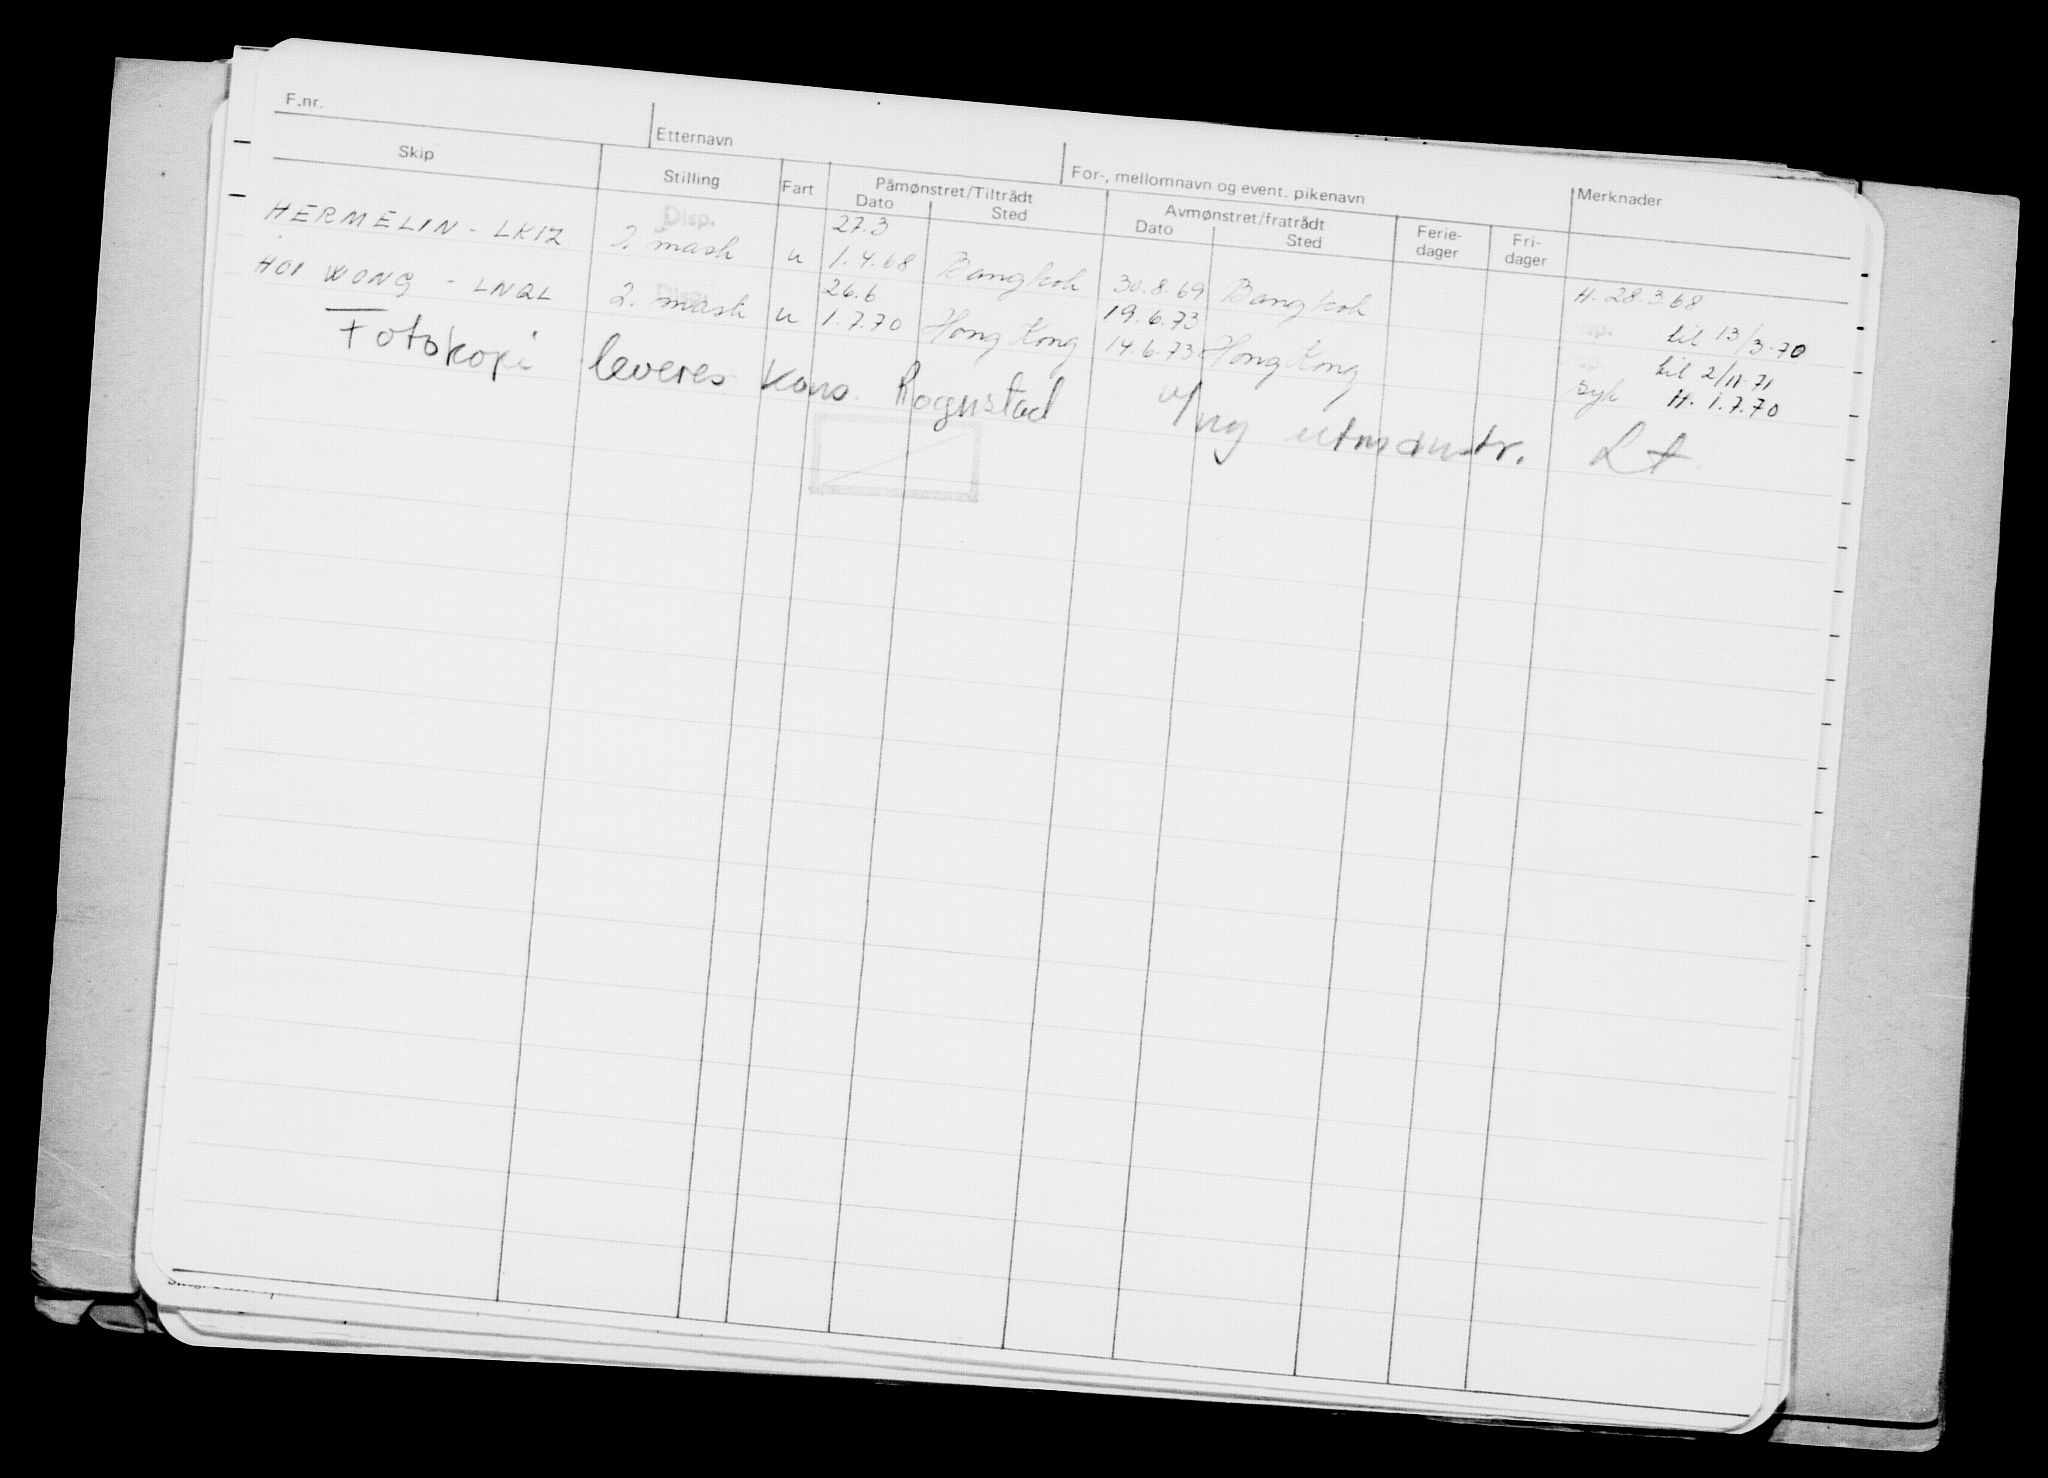 F.nr.
Etternavn
For-, mellomnavn og event. pikenavn
Merknader
Skip
Stilling
Fart
Påmønstret/Tiltrådt
Dato
Sted
Avmønstret/fratrådt
Dato
Sted
Ferie-
dager
Fri-
dager
Disp.
27.3
HERMELIN - LKIZ 2. mask u 1.4.68 Bangkok 30.8.69 Bangkok H. 28.3.68
26.6 19.6.73 til 13/3-70
HOI WONG - LNQL 2. mask u 1.7.70 Hong Kong 14.6.73 Hong Kong til 2/11-71
syk H. 1.7.70
Fotokopi leveres kons. Rognstad v/ny utmønstr.